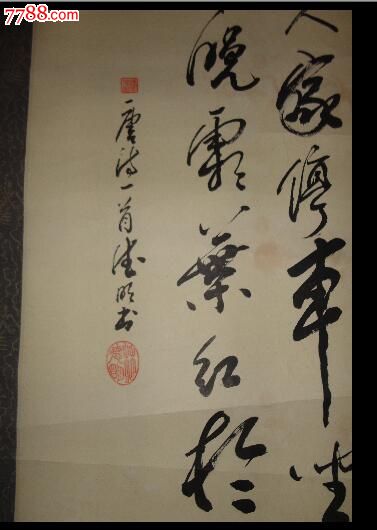 7788.com
人家停车坐
晚霜叶红于
唐诗一首德明书